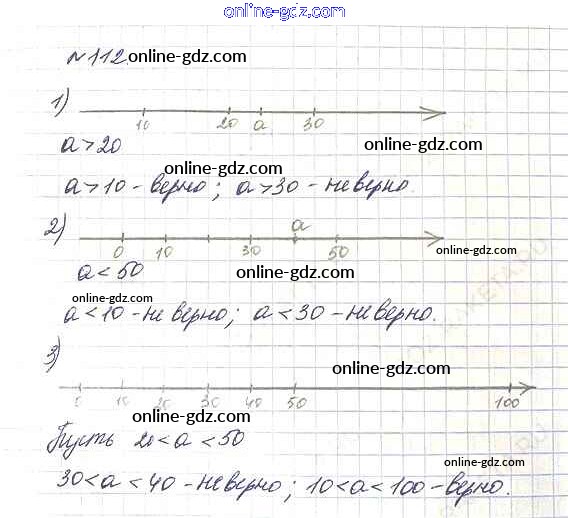 online-gdz.com
№112. online-gdz.com
1)
10 20 a 30
a>20 online-gdz.com
online-gdz.com
a>10 - верно; a>30 - неверно.
2) a
0 10 30 50 online-gdz.com
a<50 online-gdz.com
online-gdz.com
a<10 - неверно; a<30 - неверно.
3) online-gdz.com
10 20 30 40 50 100
online-gdz.com
Пусть 20<a<50
online-gdz.com
30<a<40 - неверно; 10<a<100 - верно.
online-gdz.com